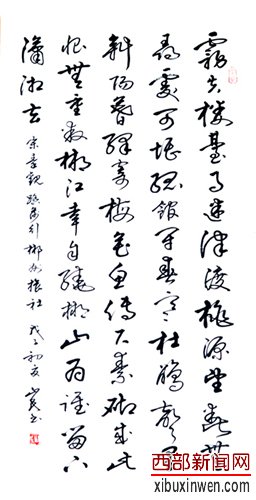 霧失樓臺月迷津渡桃源望斷無
尋處可堪孤館閉春寒杜鵑聲里
斜陽暮驛寄梅花魚傳尺素砌成此
恨無重數郴江幸自繞郴山為誰留下
瀟湘去
宋秦觀踏莎行郴州旅舍 戊子初夏
西部新闻网
xibuxinwen.com